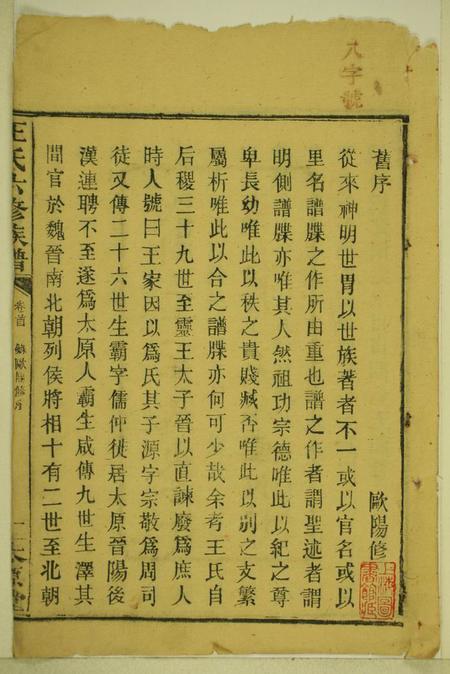 人字號
舊序
歐陽修
從來神明世冑以世族著者不一或以官名或以
里名譜牒之作所由重也譜之作者謂聖述者謂
明側譜牒亦唯其人然祖功宗德唯此以紀之尊
卑長幼唯此以秩之貴賤臧否唯此以別之支繁
屬析唯此以合之譜牒亦何可少哉余考王氏自
后稷三十九世至靈王太子晉以直諫廢爲庶人
時人號曰王家因以爲氏其子源字宗敬爲周司
徒又傳二十六世生霸字儒仲徙居太原晉陽後
漢連聘不至遂爲太原人霸生咸傳九世生澤其
間官於魏晉南北朝列侯將相十有二世至北朝
王氏六修族譜
卷首
一
上海圖書館藏